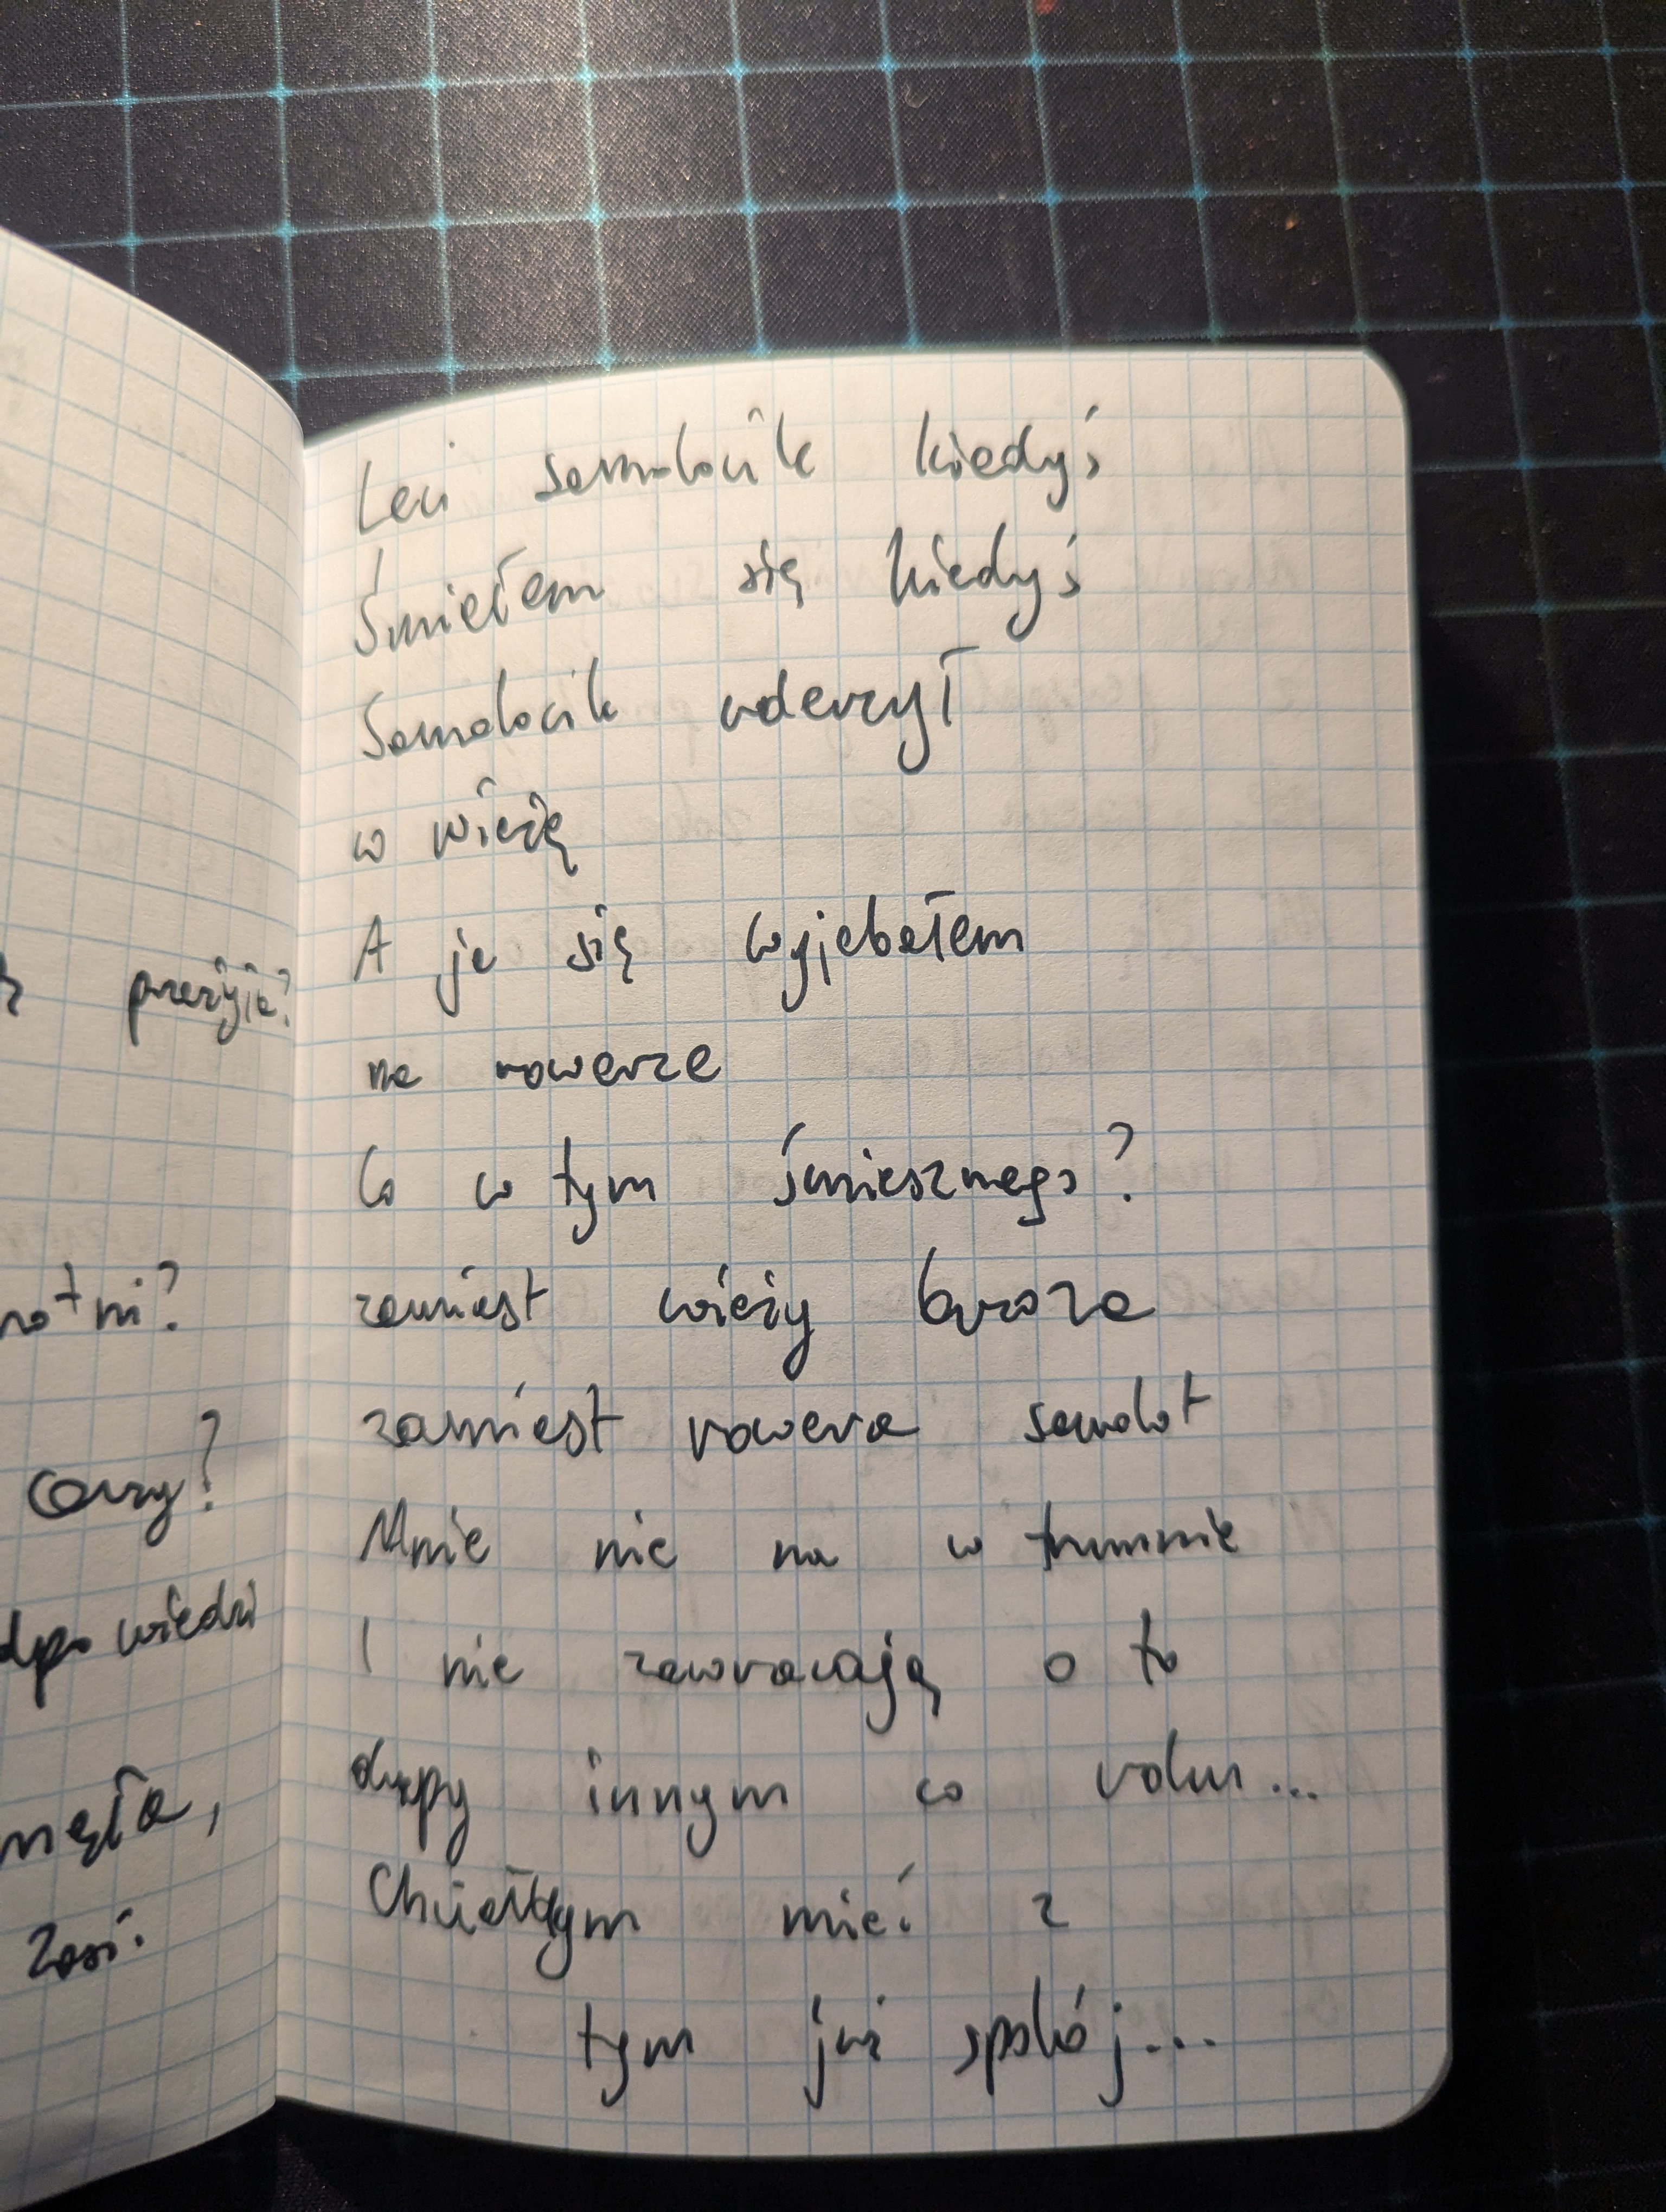 przeżyje?
?
czarny?
Zosi.
Leci samolocik kiedyś
Śmiełem się kiedyś
Samolocik uderzył
w wieżę
A ja się wyjebałem
na rowerze
Co w tym śmiesznego?
zamiast wieży brzoza
zamiast rowera samolot
Mnie nie ma w trumnie
I nie zawracają o to
dupy innym co
Chciałbym mieć z
tym już spokój...